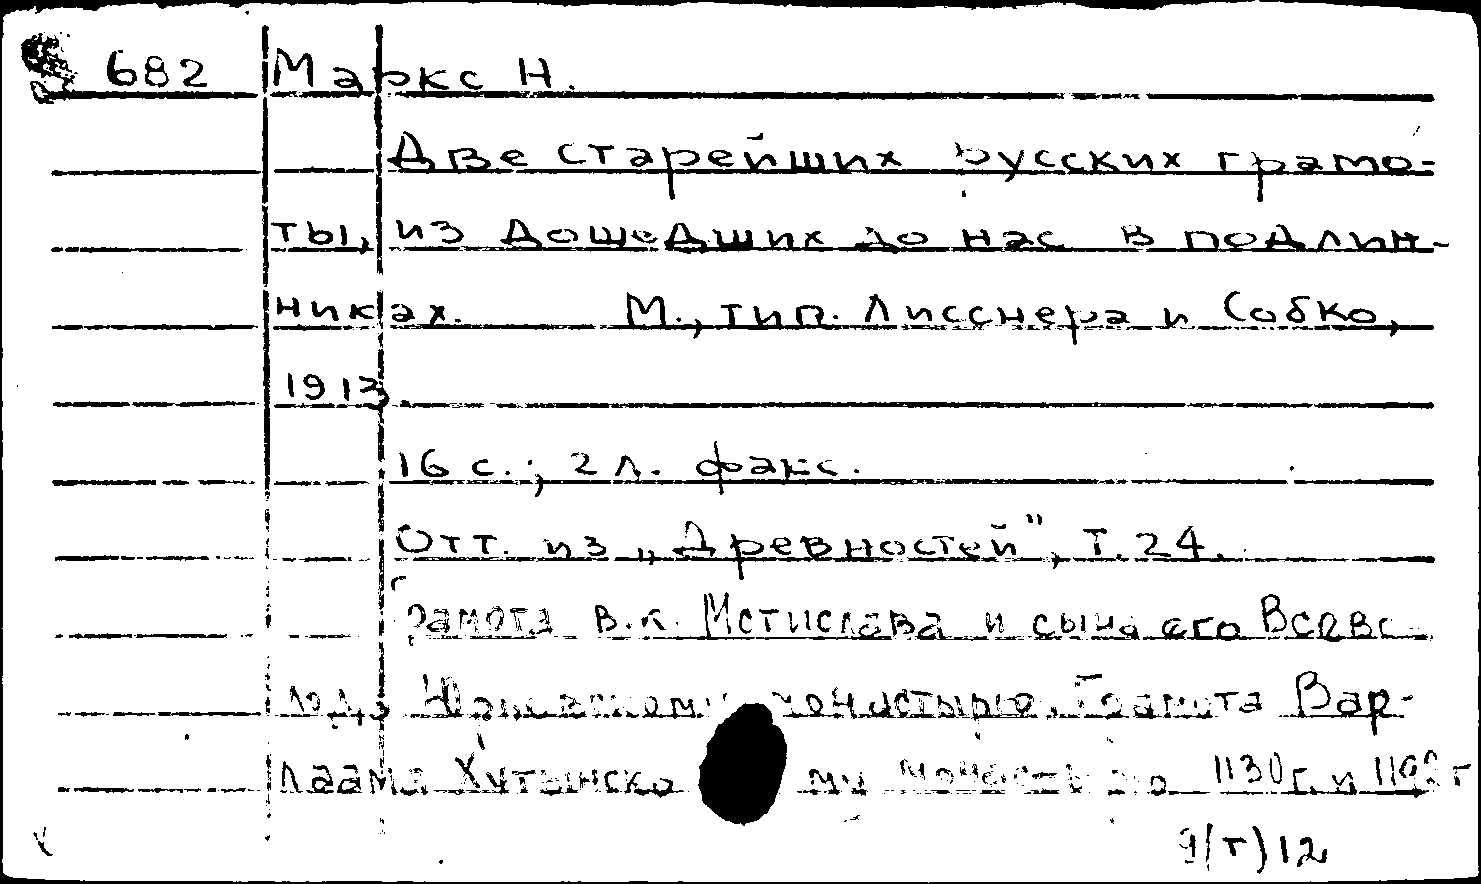 682 Маркс Н.
Две старейших русских грамо-
ты, из дошедших до нас в подлин-
никах. М., тип. Лисснера и Собко,
1913
16 с.; 2 л. факс.
Отт. из „Древностей", т. 24.
Грамота в.к. Мстислава и сына его Всево
лода Юрьевскому монастырю. Грамота Вар-
лаама Хутынско му монастырю 1130 г. и 1192 г
9(т)12